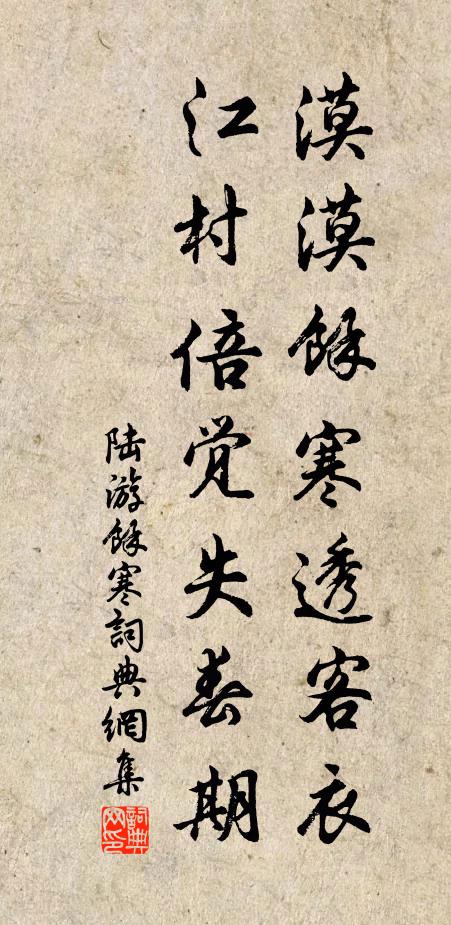 漠漠餘寒透客衣
江村倍觉失春期
陆游餘寒詞典網集
詞典网印